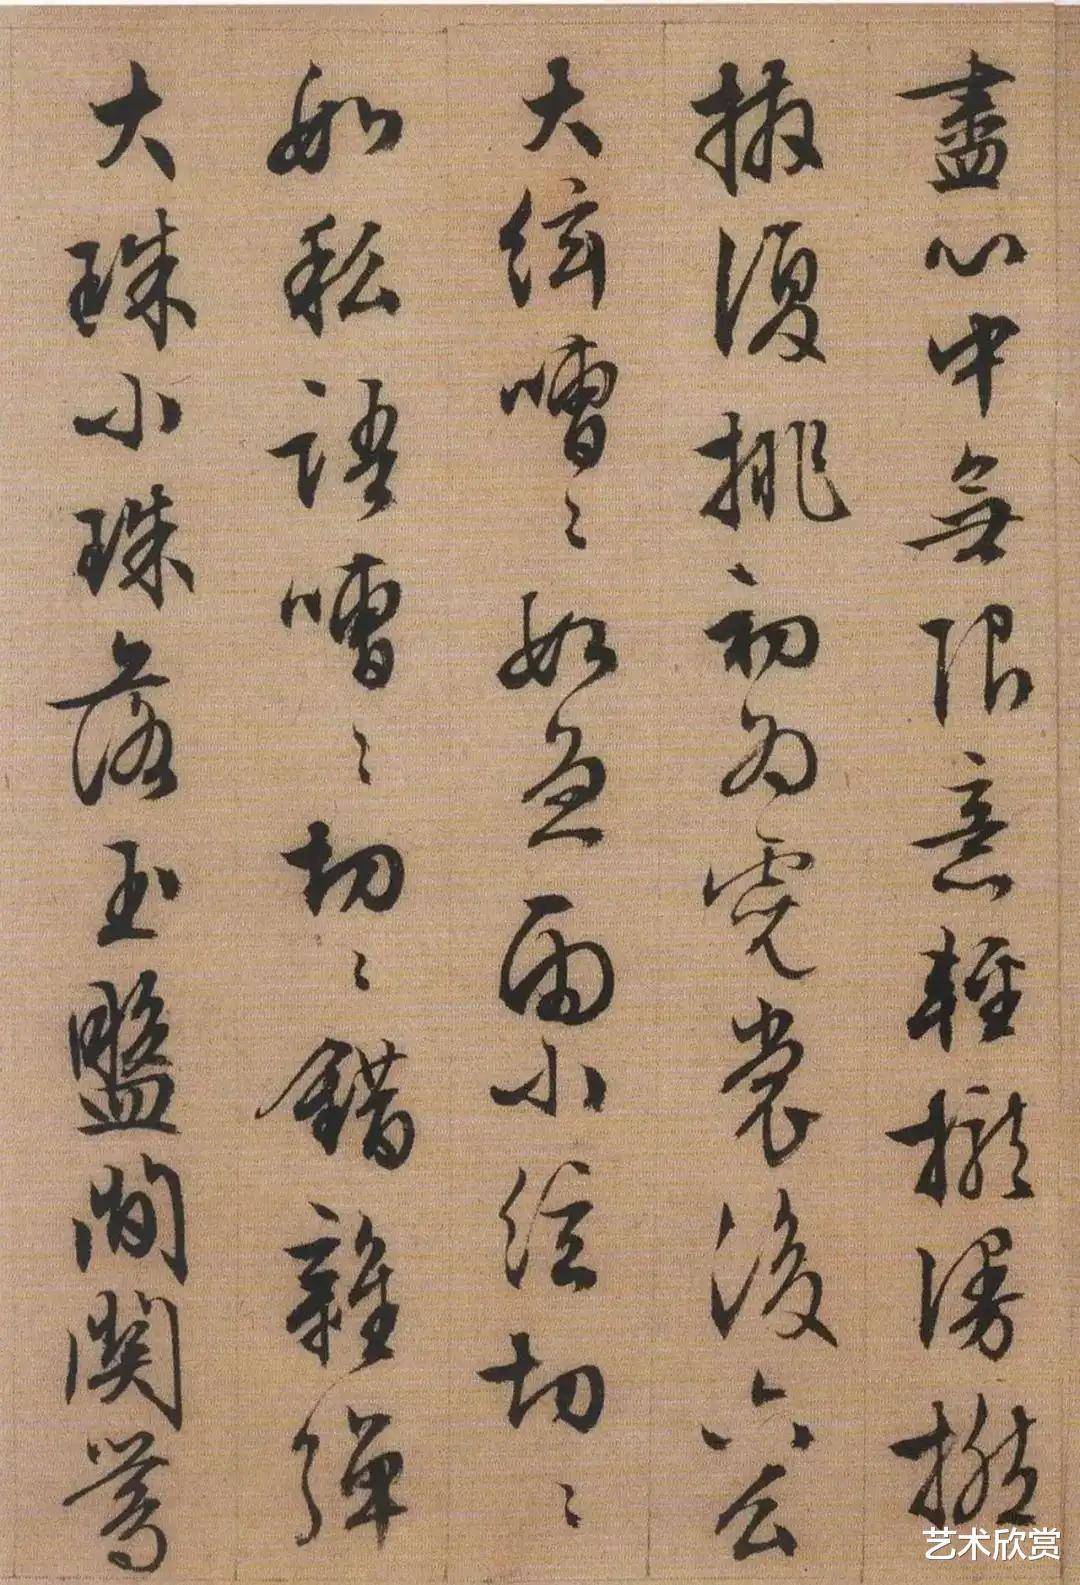 盡心中無限意輕攏漫撚
撥復挑初為霓裳後六么
大絃嘈〻如急雨小絃切〻
如私語嘈〻切〻錯雜彈
大珠小珠落玉盤間關鶯
艺术欣赏